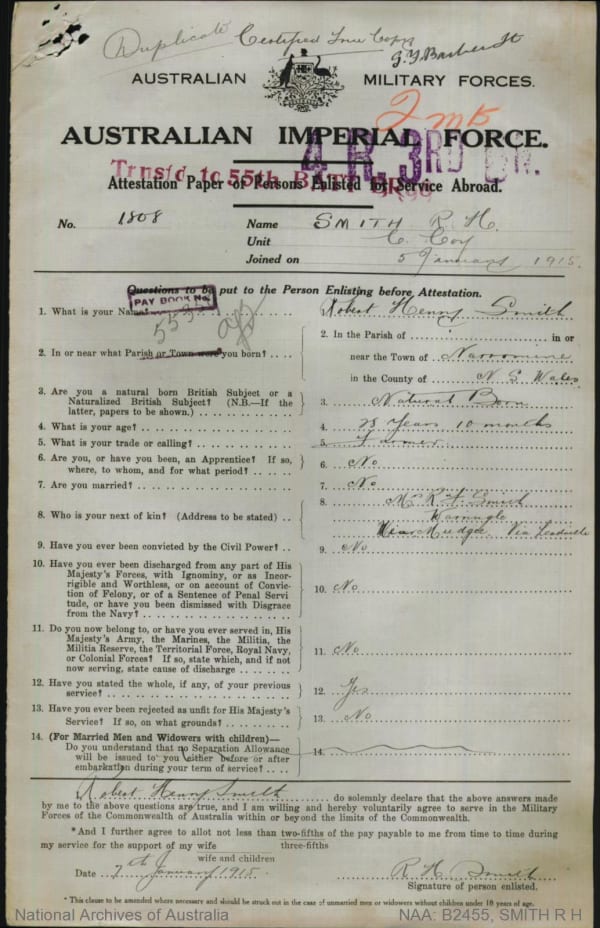 Duplicate Certified True Copy
AUSTRALIAN MILITARY FORCES.
AUSTRALIAN IMPERIAL FORCE.
4 R. 3RD BN.
Transf'd to 55th
Attestation Paper of Persons Enlisted for Service Abroad.
No. 1808 Name SMITH R. H.
Unit C. Coy
Joined on 5 January 1915.
Questions to be put to the Person Enlisting before Attestation.
PAY BOOK No.
1. What is your Name? Robert Henry Smith
2. In or near what Parish or Town were you born? 2. In the Parish of in or
near the Town of Narromine
in the County of N S Wales
3. Are you a natural born British Subject or a
Naturalized British Subject? (N.B.—If the
latter, papers to be shown.) 3. Natural Born
4. What is your age? 4. 28 Years 10 months
5. What is your trade or calling? 5. Farmer
6. Are you, or have you been, an Apprentice? If so,
where, to whom, and for what period? 6. No
7. Are you married? 7. No
8. Who is your next of kin? (Address to be stated) 8. Smith
Mudgee Via Leadville
9. Have you ever been convicted by the Civil Power? 9. No
10. Have you ever been discharged from any part of His
Majesty's Forces, with Ignominy, or as Incor-
rigible and Worthless, or on account of Convic-
tion of Felony, or of a Sentence of Penal Servi
tude, or have you been dismissed with Disgrace
from the Navy? 10. No
11. Do you now belong to, or have you ever served in, His
Majesty's Army, the Marines, the Militia, the
Militia Reserve, the Territorial Force, Royal Navy,
or Colonial Forces? If so, state which, and if not
now serving, state cause of discharge 11. No
12. Have you stated the whole, if any, of your previous
service? 12. Yes
13. Have you ever been rejected as unfit for His Majesty's
Service? If so, on what grounds? 13. No
14. (For Married Men and Widowers with children)—
Do you understand that no Separation Allowance
will be issued to you either before or after
embarkation during your term of service? 14.
I, Robert Henry Smith do solemnly declare that the above answers made
by me to the above questions are true, and I am willing and hereby voluntarily agree to serve in the Military
Forces of the Commonwealth of Australia within or beyond the limits of the Commonwealth.
*And I further agree to allot not less than two-fifths of the pay payable to me from time to time
three-fifths
during my service for the support of my wife
wife and children
Date 7th January 1915. R H Smith
Signature of person enlisted.
* This clause to be amended where necessary and should be struck out in the case of unmarried men or widowers without children under 18 years of age.
National Archives of Australia NAA: B2455, SMITH R H